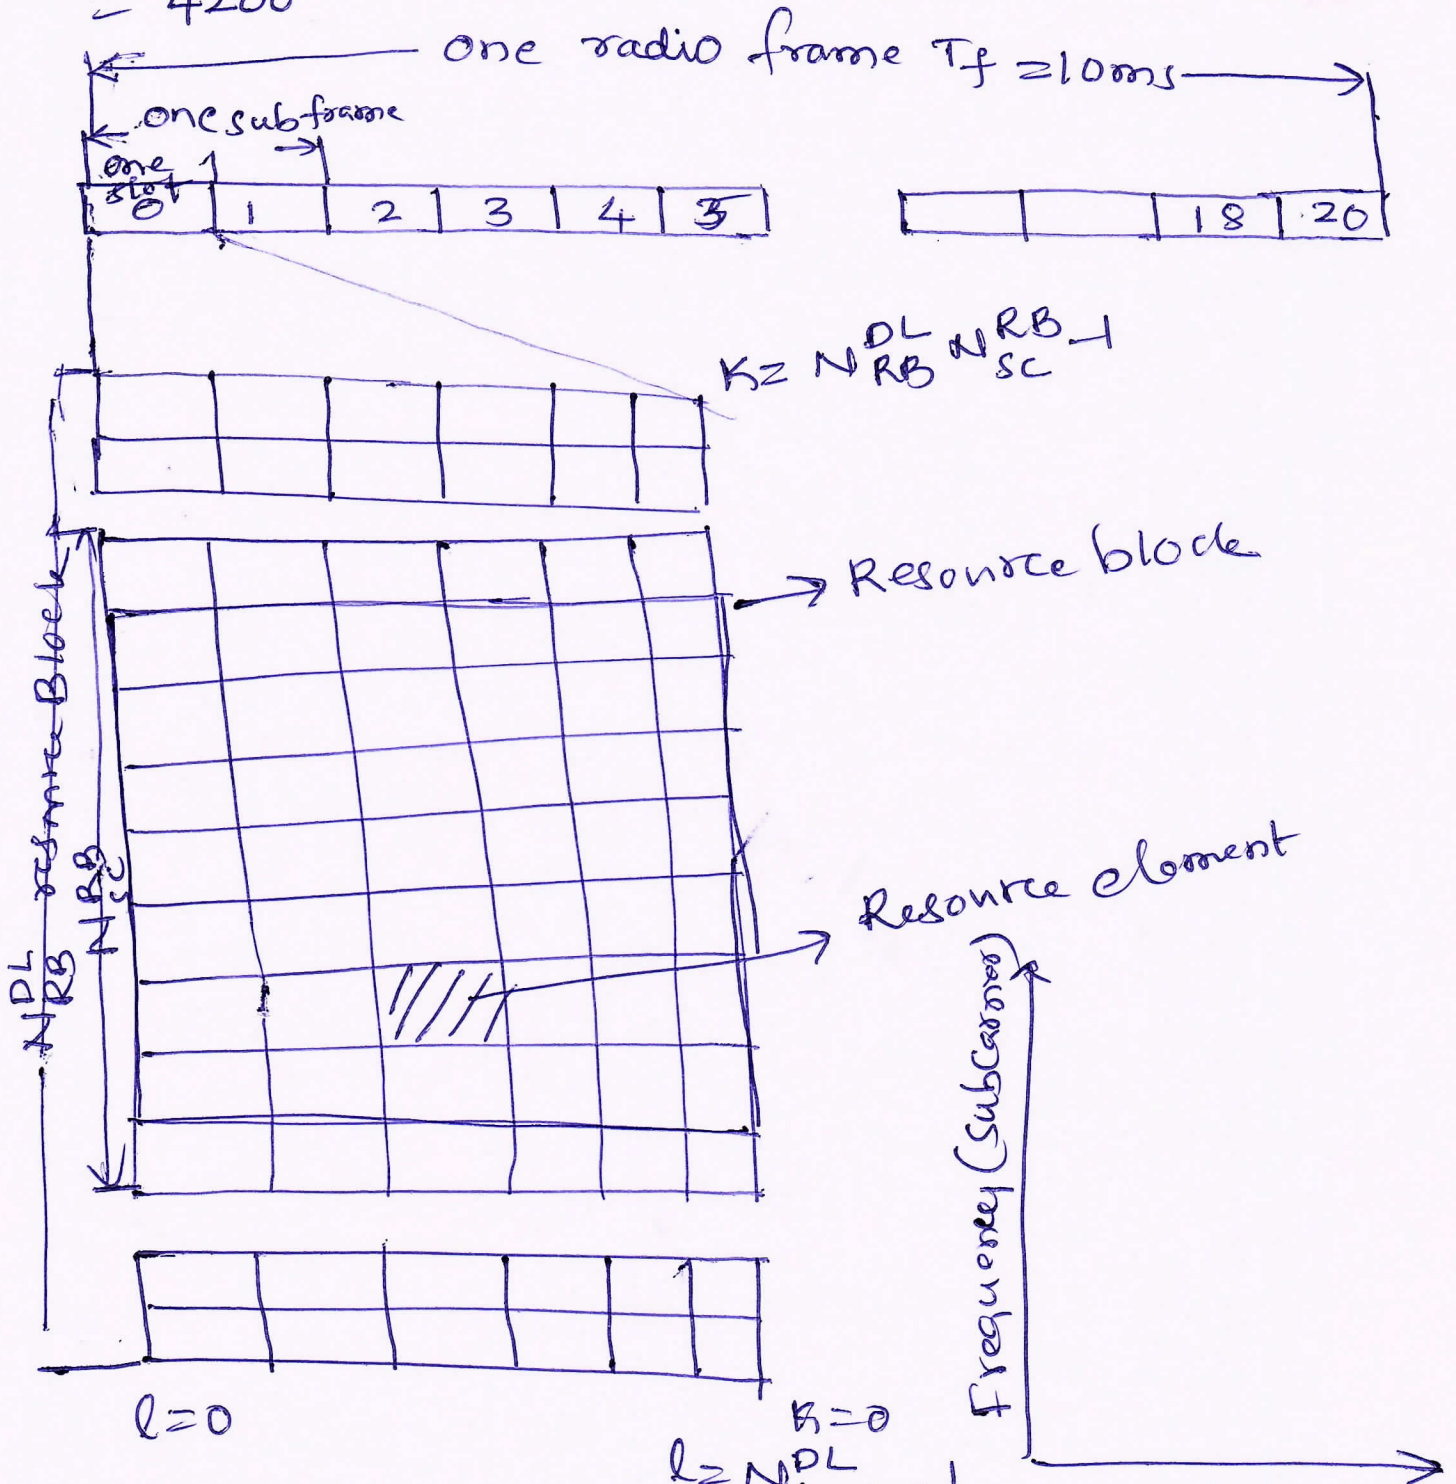 = 4200
one radio frame Tf = 10ms
one subframe
one slot
0 1 2 3 4 5 18 20
K = N_RB^DL N_SC^RB - 1
Resource block
N_RB^DL resource Block
N_SC^RB
Resource element
Frequency (Subcarrier)
l=0
K=0
l = N^DL - 1